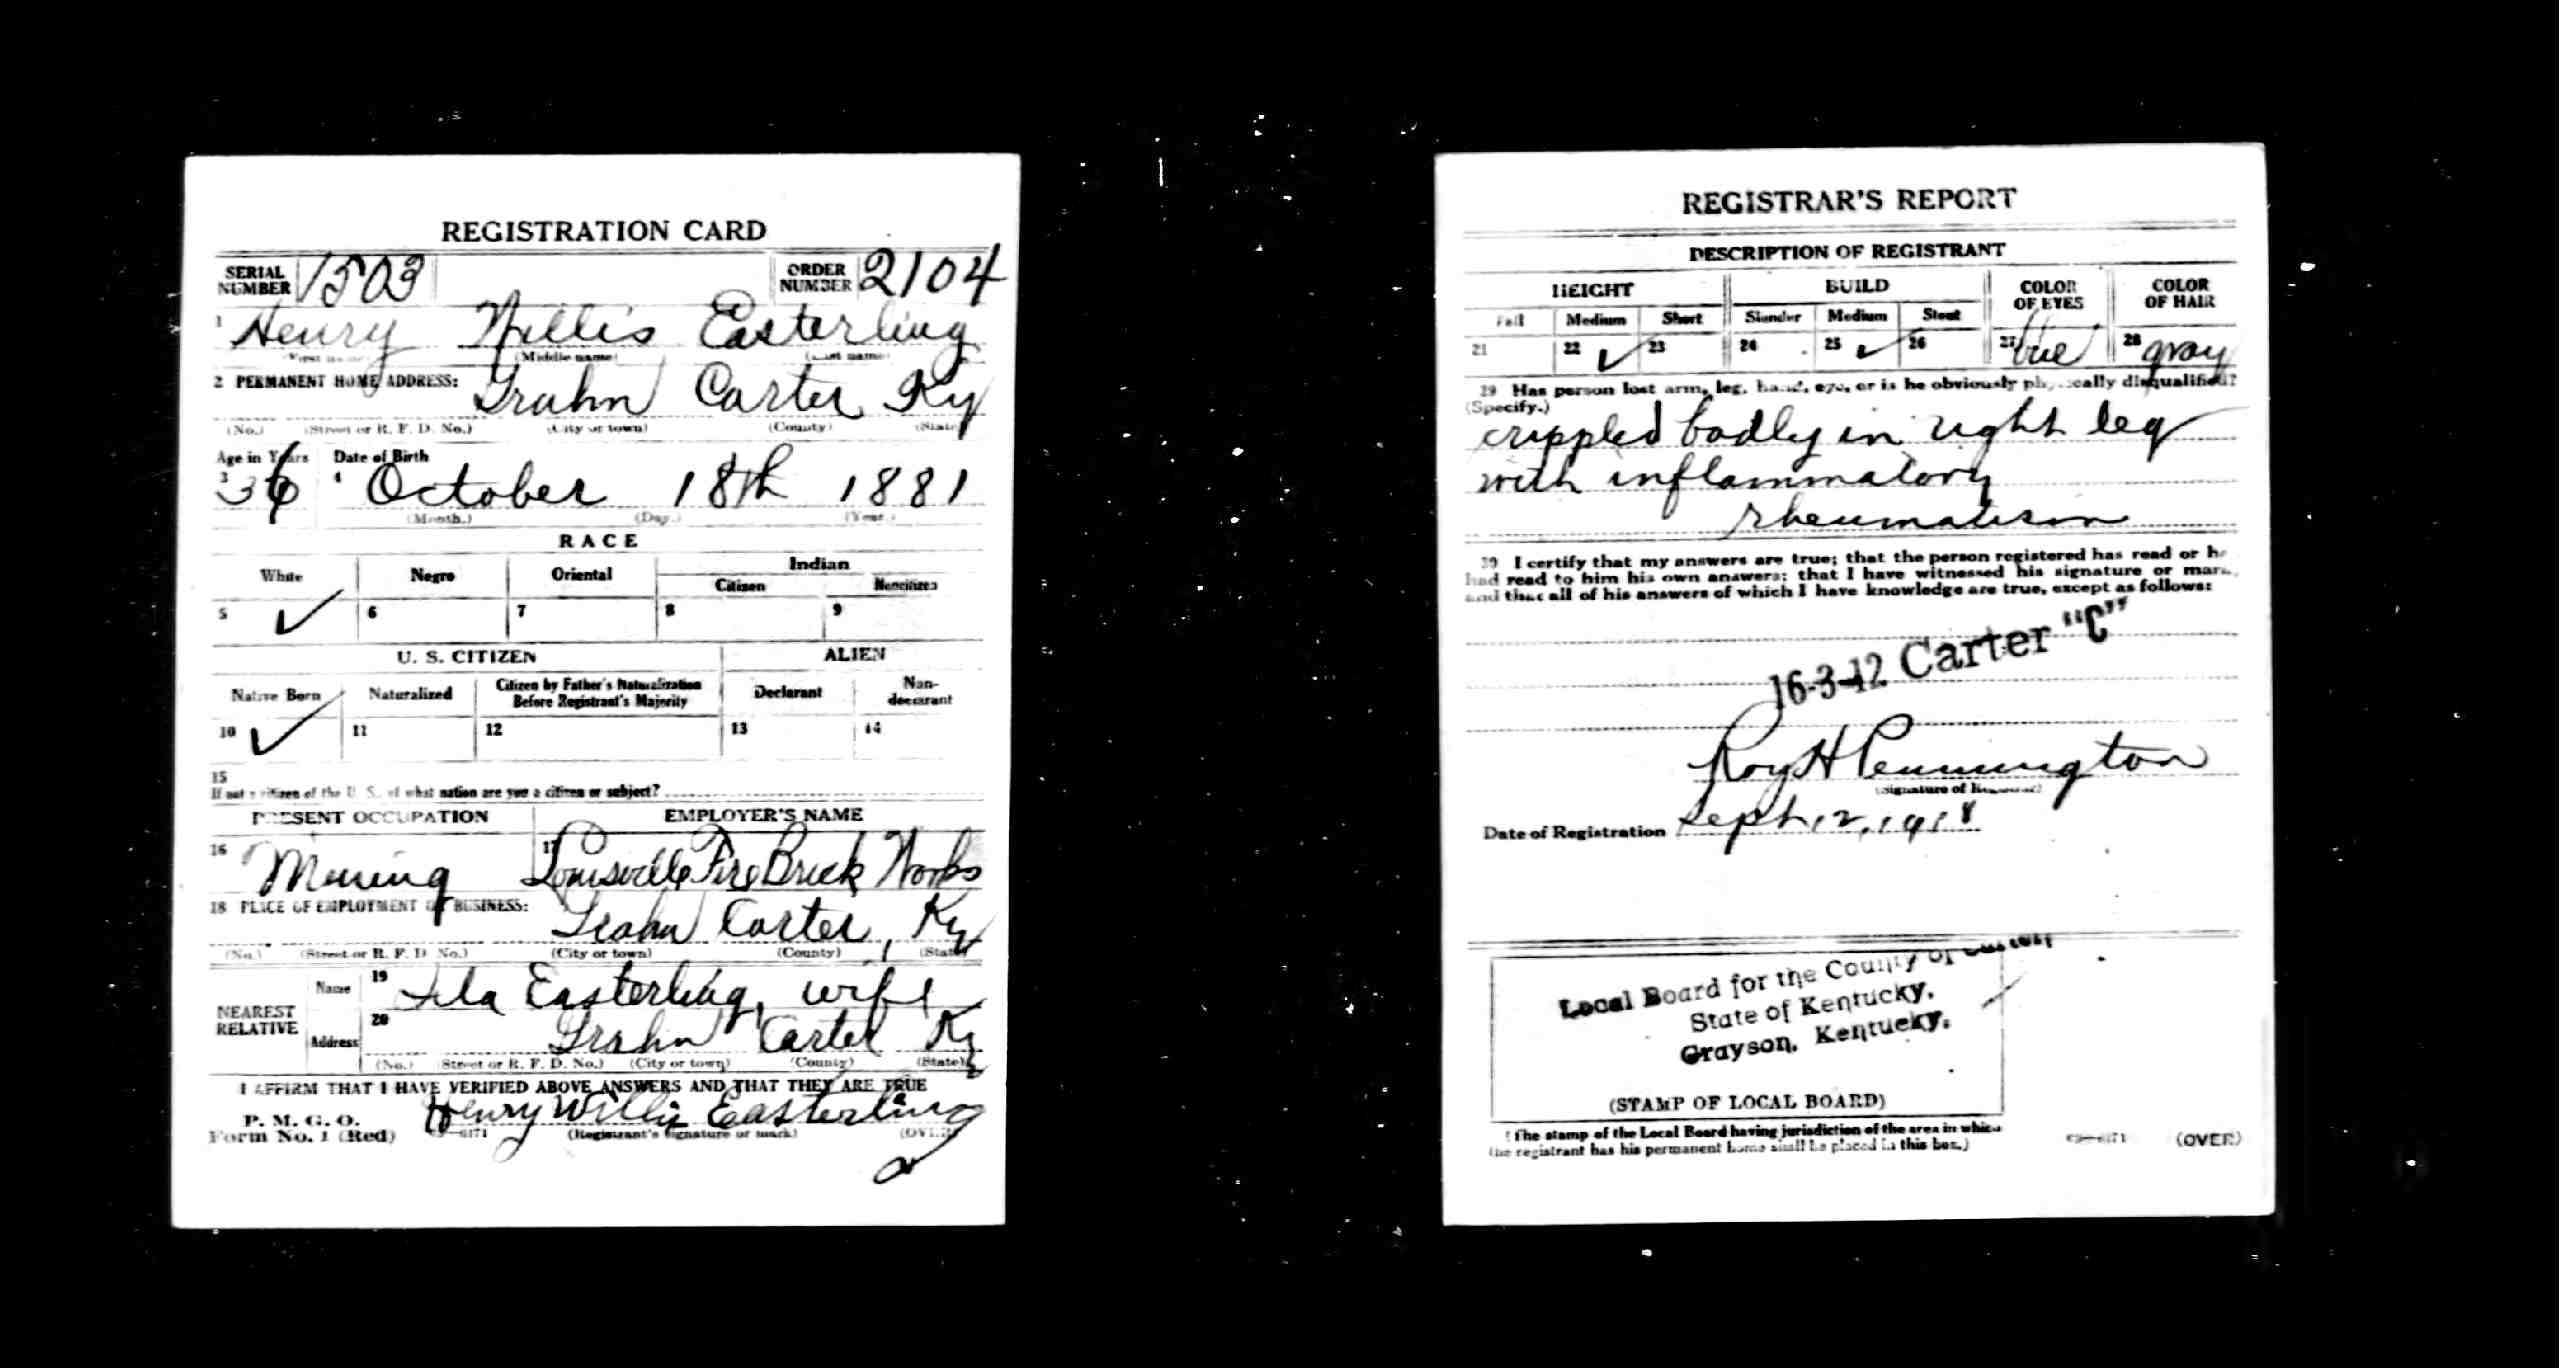 REGISTRATION CARD
SERIAL NUMBER 1503 ORDER NUMBER 2104
1 Henry Willis Easterling
(First name) (Middle name) (Last name)
2 PERMANENT HOME ADDRESS: Grahn Carter Ky
(No.) (Street or R. F. D. No.) (City or town) (County) (State)
Age in Years Date of Birth
3 36 4 October 18th 1881
(Month.) (Day.) (Year.)
RACE
White Negro Oriental Indian
Citizen Noncitizen
5 ✓ 6 7 8 9
U. S. CITIZEN ALIEN
Native Born Naturalized Citizen by Father's Naturalization Before Registrant's Majority Declarant Non-declarant
10 ✓ 11 12 13 14
15
If not a citizen of the U. S., of what nation are you a citizen or subject?
PRESENT OCCUPATION EMPLOYER'S NAME
16 Mining 17 Louisville Fire Brick Works
18 PLACE OF EMPLOYMENT OR BUSINESS: Grahn Carter, Ky
(No.) (Street or R. F. D. No.) (City or town) (County) (State)
NEAREST RELATIVE Name 19 Easterling, wife
Address 20 Grahn Carter Ky
(No.) (Street or R. F. D. No.) (City or town) (County) (State)
I AFFIRM THAT I HAVE VERIFIED ABOVE ANSWERS AND THAT THEY ARE TRUE
P. M. G. O.
Form No. 1 (Red) Henry Willis Easterling
(Registrant's signature or mark) (OVER)
REGISTRAR'S REPORT
DESCRIPTION OF REGISTRANT
HEIGHT BUILD COLOR OF EYES COLOR OF HAIR
Tall Medium Short Slender Medium Stout
21 22 ✓ 23 24 25 ✓ 26 27 blue 28 gray
29 Has person lost arm, leg, hand, eye, or is he obviously physically disqualified?
(Specify.)
crippled badly in right leg
with inflammatory
rheumatism
30 I certify that my answers are true; that the person registered has read or has
had read to him his own answers; that I have witnessed his signature or mark,
and that all of his answers of which I have knowledge are true, except as follows:
16-3-12 Carter "C"
Roy H Pennington
(Signature of Registrar)
Date of Registration Sept. 12, 1918
Local Board for the County of Carter
State of Kentucky,
Grayson, Kentucky.
(STAMP OF LOCAL BOARD)
(The stamp of the Local Board having jurisdiction of the area in which
the registrant has his permanent home shall be placed in this box.)
(OVER)